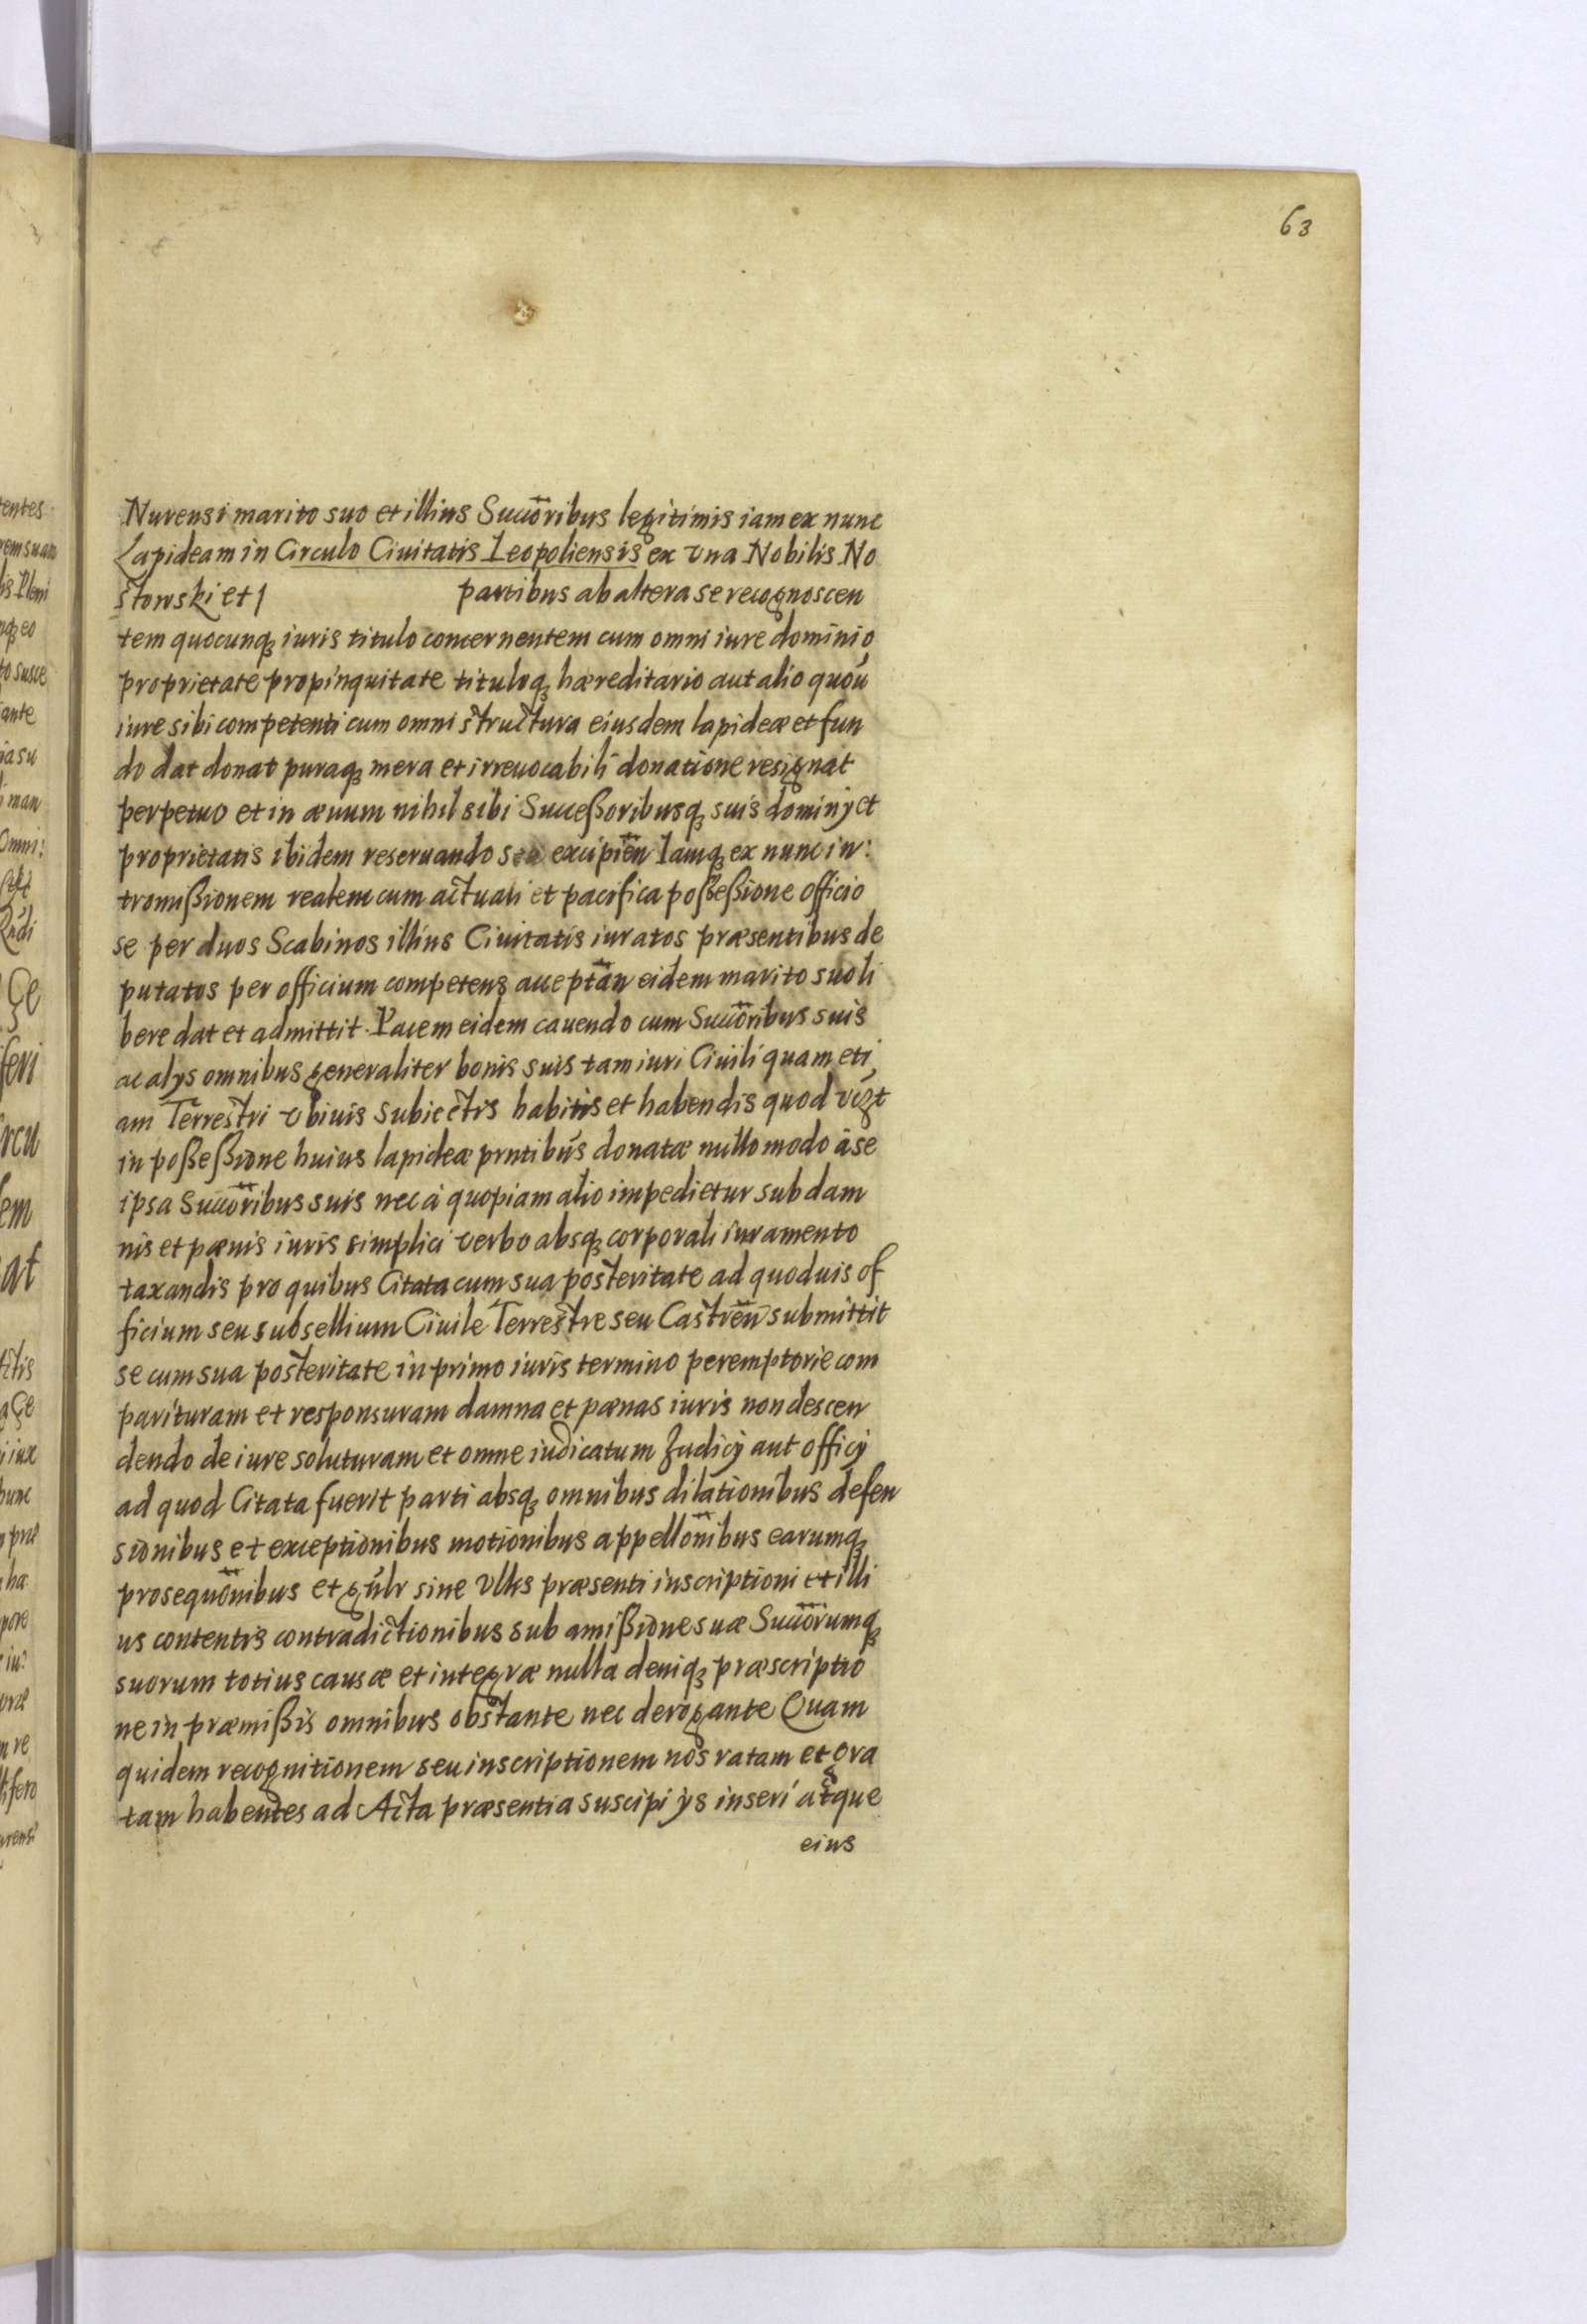 63
Nurensi marito suo et illius Succōribus legitimis iam ex nunc
Lapideam in Circulo Ciuitatis Leopoliensis ex vna Nobilis No
stowski et partibus ab altera se recognoscen
tem quocunq iuris titulo concernentem cum omni iure dominio
proprietate propinquitate tituloq hæreditario aut alio quoū
iure sibi competenti cum omni structura eiusdem lapideæ et fun
do dat donat puraq mera et irreuocabili donatione resignat
perpetuo et in æuum nihil sibi Successoribusq suis dominij et
proprietatis ibidem reseruando seu excipien̄ Iamq ex nunc in:
tromißionem realem cum actuali et pacifica poßeßione officio
se per duos Scabinos illius Ciuitatis iuratos præsentibus de
putatos per officium competens acceptan̄ eidem marito suo li
bere dat et admittit. Pacem eidem cauendo cum Succōribus suis
ac alijs omnibus generaliter bonis suis tam iuri Ciuili quam eti
am Terrestri vbiuis subiectis habitis et habendis quod vꝫt
in poßeßione huius lapideæ prntibus donatæ nullo modo à se
ipsa Succōribus suis nec à quopiam alio impedietur sub dam
nis et pœnis iuris simplici verbo absq corporali iuramento
taxandis pro quibus Citata cum sua posteritate ad quoduis of
ficium seu subsellium Ciuile Terrestre seu Castren̄ submittit
se cum sua posteritate in primo iuris termino peremptorie com
parituram et responsuram damna et pœnas iuris non descen
dendo de iure soluturam et omne iudicatum Iudicij aut officij
ad quod Citata fuerit parti absq omnibus dilationibus defen
sionibus et exceptionibus motionibus appellōnibus earumq
prosequōnibus et gūlr sine vllis præsenti inscriptioni et illi
us contentis contradictionibus sub amißione suæ Succōrumq
suorum totius causæ et integræ nulla deniq præscriptio
ne in præmißis omnibus obstante nec derogante Quam
quidem recognitionem seu inscriptionem nos ratam et gra
tam habentes ad Acta præsentia suscipi ijs inseri atque
eius